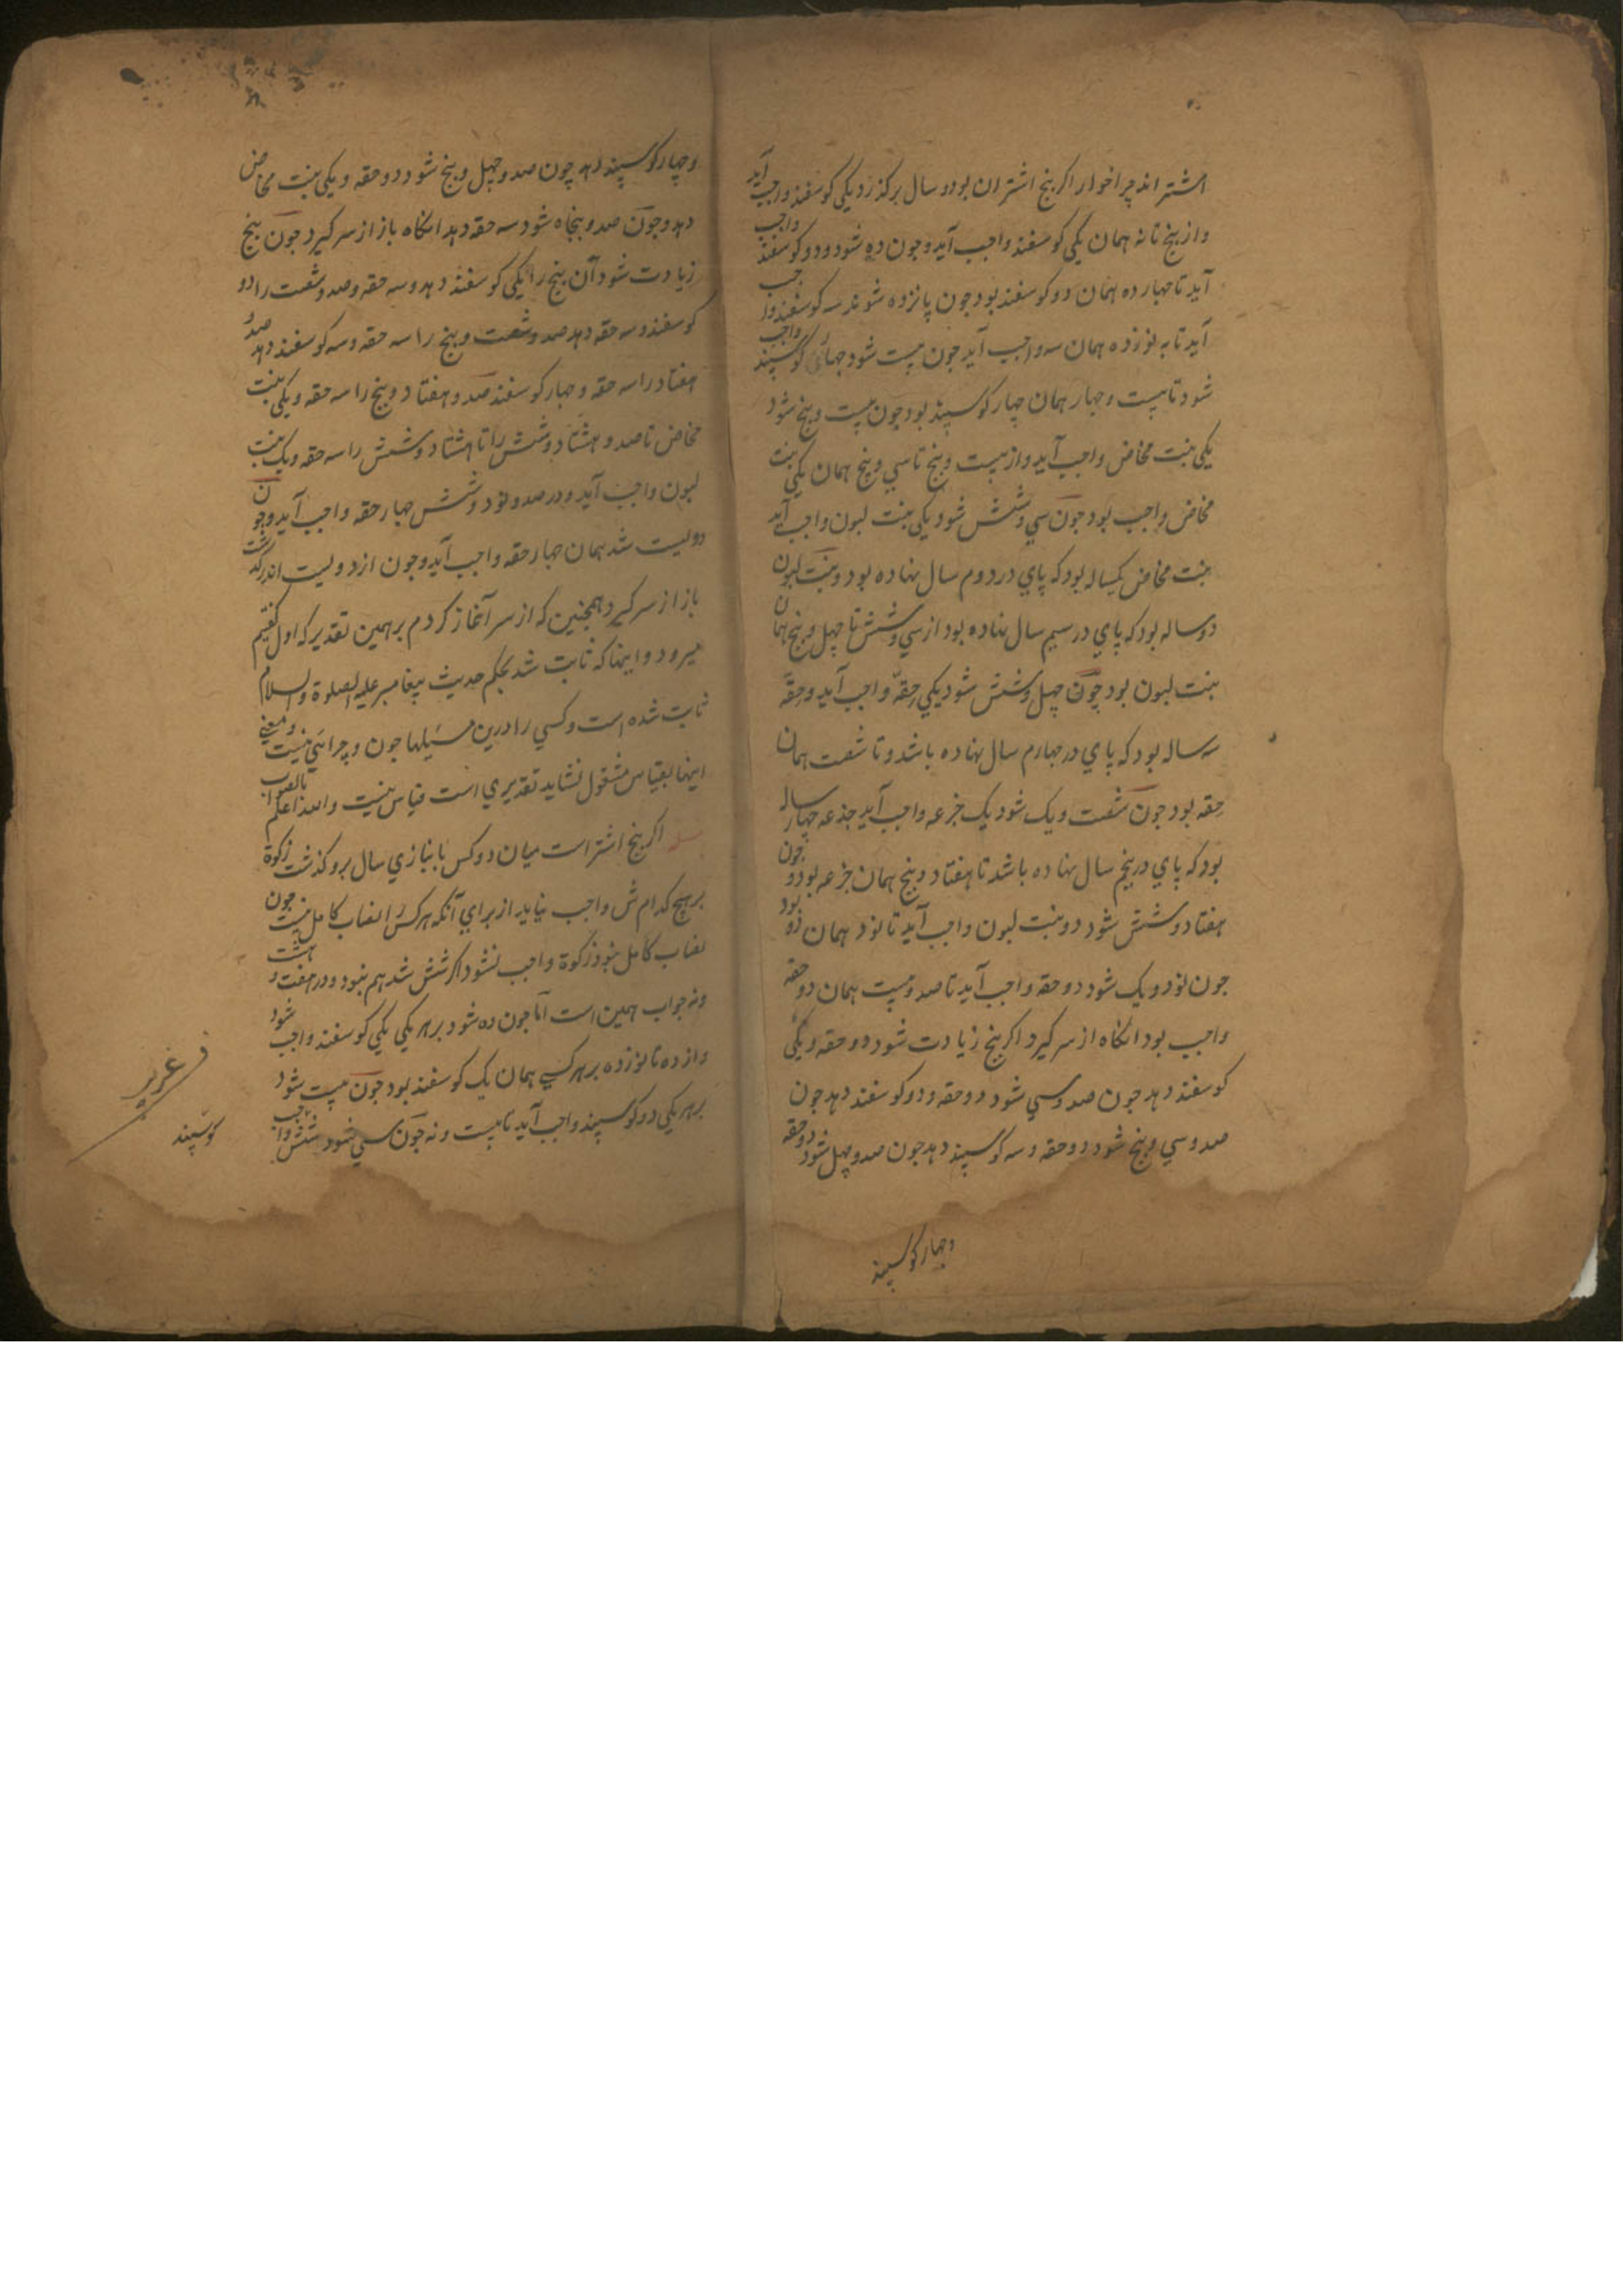 اشتر اندچراخوار اکر پنج اشتران بود و سال برکذرد یکی کوسفند واجب آید
واز پنج تا نه همان یکی کوسفند واجب آید وجون ده شود دو کوسفند واجب
آید تا جهارده همان دو کوسفند بود جون پانزده شوند سه کوسفند واجب
آید تا به نوزده همان سه واجب آید جون بیست شود جهار کوسپند واجب
شود تا بیست وجهار همان جهار کوسپند بود جون بیست وپنج شود
یکی بنت مخاض واجب آید واز بیست وپنج تا سی وپنج همان یکی بنت
مخاض واجب بود جون سی وشش شود یکی بنت لبون واجب آید
بنت مخاض یکساله بود که پای در دوم سال نهاده بود وبنت لبون
دوساله بود که پای در سیم سال نهاده بود از سی وشش تا چهل وپنج همان
بنت لبون بود چون چهل وشش شود یکی حقّه واجب آید وحقّه
سه ساله بود که پای در جهارم سال نهاده باشد وتا شصت همان
حقه بود جون شصت ویک شود یک جزعه واجب آید جذعه چهارساله
بود که پای در پنجم سال نهاده باشد تا هفتاد وپنج همان جزعه بود و جون
هفتاد وشش شود دو بنت لبون واجب آید تا نود همان دو بود
جون نود ویک شود دو حقه واجب آید تا صد وبیست همان دو حقه
واجب بود انکاه از سر کیرد اکر پنج زیادت شود دو حقه ویکی
کوسفند دهد جون صد وسی شود دو حقه ودو کوسفند دهد جون
صد وسی وپنج شود دو حقه وسه کوسپند دهد جون صد وچهل شود دو حقه
وجهار کوسپند
وچهار کوسپند دهد چون صد وچهل وپنج شود دو حقه ویکی بنت مخاض
دهد وجون صد وپنجاه شود سه حقه دهد انکاه باز از سر کیرد جون پنج
زیادت شود آن پنج را یکی کوسفند دهد وسه حقه وصد وشصت را دو
کوسفند وسه حقه دهد صد وشصت وپنج را سه حقه وسه کوسفند دهد صد و
هفتاد را سه حقه وجهار کوسفند صد وهفتاد وپنج را سه حقه ویکی بنت
مخاض تا صد وهشتاد وشش را تا هشتاد وشش را سه حقه ویک بنت
لبون واجب آید ودر صد ونود وشش جهار حقه واجب آید وجون
دولیست شد همان جهار حقه واجب آید وجون از دولیست اندر کذشت
باز از سر کیرد همچنین که از سر آغاز کردم برهمین تقدیر که اول کفتیم
میرود واینها که ثابت شد بحکم حدیث پیغامبر علیه الصلوة والسلام
ثابت شده است وکسی را درین مسیلها جون وچرا نیست ومعنی
اینها بقیاس مشغول نشاید تقدیری است قیاس نیست والله اعلم بالصواب
مسله اکر پنج اشتر است میان دو کس بانبازی سال برو کذشت زکوة
برهیچ کدامش واجب نیاید از برای آنکه هرکس را نصاب کامل نیست جون
نصاب کامل نبود زکوة واجب نشود اکر شش شد هم نبود ودر هفت وهشت
ونه جواب همین است امّا جون ده شود بر هر یکی یکی کوسفند واجب شود
واز ده تا نوزده بر هر کسی همان یک کوسفند بود جون بیست شود
بر هر یکی دو کوسپند واجب آید تا بیست ونه جون سی شود شش واجب
کوسپند